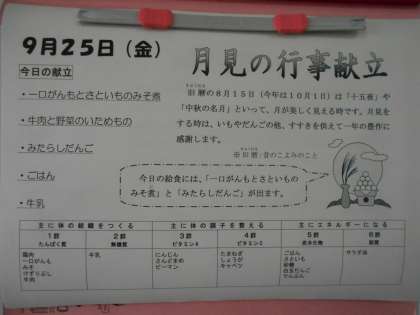 9月25日（金）
月見の行事献立
今日の献立
・一口がんもとさといものみそ煮
・牛肉と野菜のいためもの
・みたらしだんご
・ごはん
・牛乳
旧暦の8月15日（今年は10月1日）は「十五夜」や
「中秋の名月」といって、月が美しく見える時です。月見を
する時は、いもやだんごの他、すすきを供えて一年の豊作に
感謝します。
※旧暦：昔のこよみのこと
今日の給食には、「一口がんもとさといもの
みそ煮」と「みたらしだんご」が出ます。
主に体の組織をつくる 主に体の調子を整える 主にエネルギーになる
1群 2群 3群 4群 5群 6群
たんぱく質 無機質 ビタミンA ビタミンC 炭水化物 脂質
鶏肉 牛乳 にんじん たまねぎ ごはん サラダ油
一口がんも さんどまめ しょうが さといも
みそ ピーマン キャベツ 砂糖
けずりぶし 白玉だんご
牛肉 でんぷん